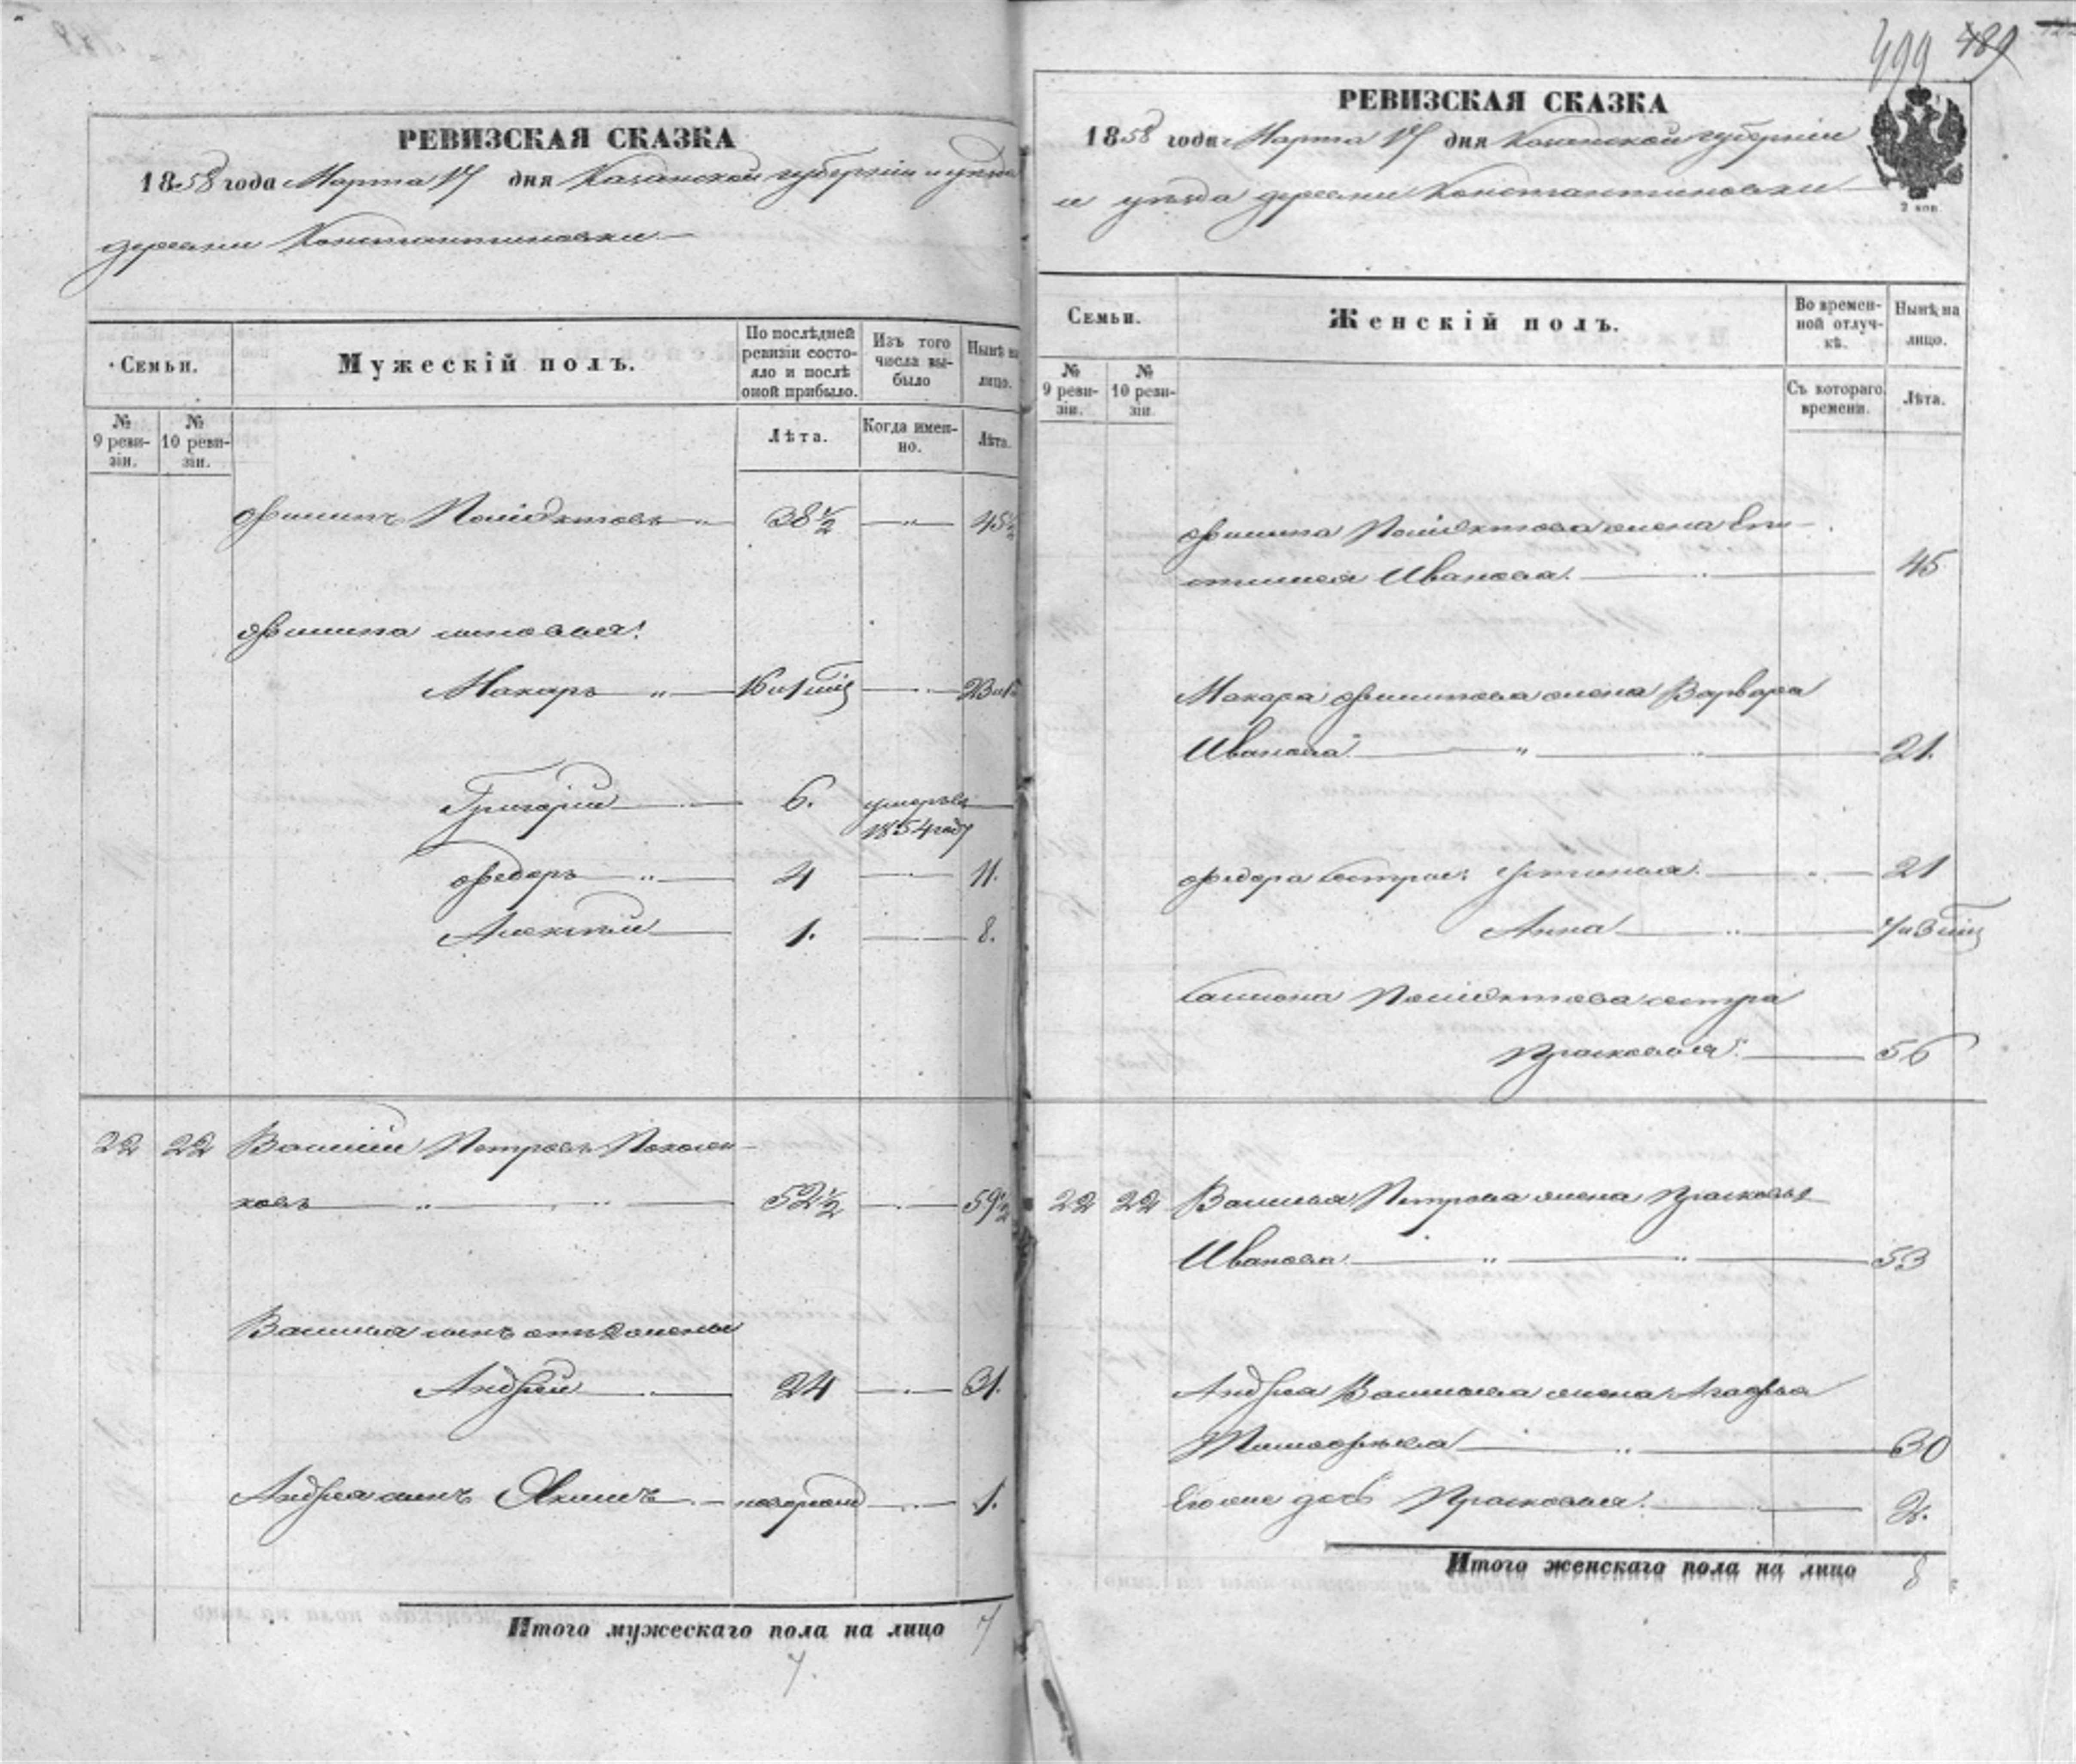 499 489
РЕВИЗСКАЯ СКАЗКА
1858 года Марта 17 дня Казанской губерніи и уѣзда
деревни Константиновки
Семьи.
Мужескій полъ.
По послѣдней ревизіи состояло и послѣ оной прибыло.
Изъ того числа выбыло
Нынѣ на лицо.
№ 9 ревизіи.
№ 10 ревизіи.
Лѣта.
Когда именно.
Лѣта.
Филипъ 38½ 45½
Филипа сыновья:
Макаръ 16 23
Григорій 6. умеръ въ
1854 году
Федоръ 4 11.
Алексѣй 1. 8.
22 22 Василій Петровъ
ковъ 52½ 59½
Василья сынъ отъ 2 жены
Андрей 24 31.
Андрея сынъ Якимъ новорожд 1.
Итого мужескаго пола на лицо 7
7.
РЕВИЗСКАЯ СКАЗКА
1858 года Марта 17 дня Казанской губерніи
и уѣзда деревни Константиновки
2 коп.
Семьи.
Женскій полъ.
Во временной отлучкѣ.
Нынѣ на лицо.
№ 9 ревизіи.
№ 10 ревизіи.
Съ котораго времени.
Лѣта.
Филипа жена Епи-
стимея Иванова. 45
Макара Филипова жена Варвара
Иванова 21.
Федора сестры: Устинья 21
Анна 7
сестра
Прасковья 56
22 22 Василья Петрова жена Прасковья
Иванова 53
Андрея Васильева жена Агафья
Тимофѣева 30
Его же дочь Прасковья. 2.
Итого женскаго пола на лицо 8